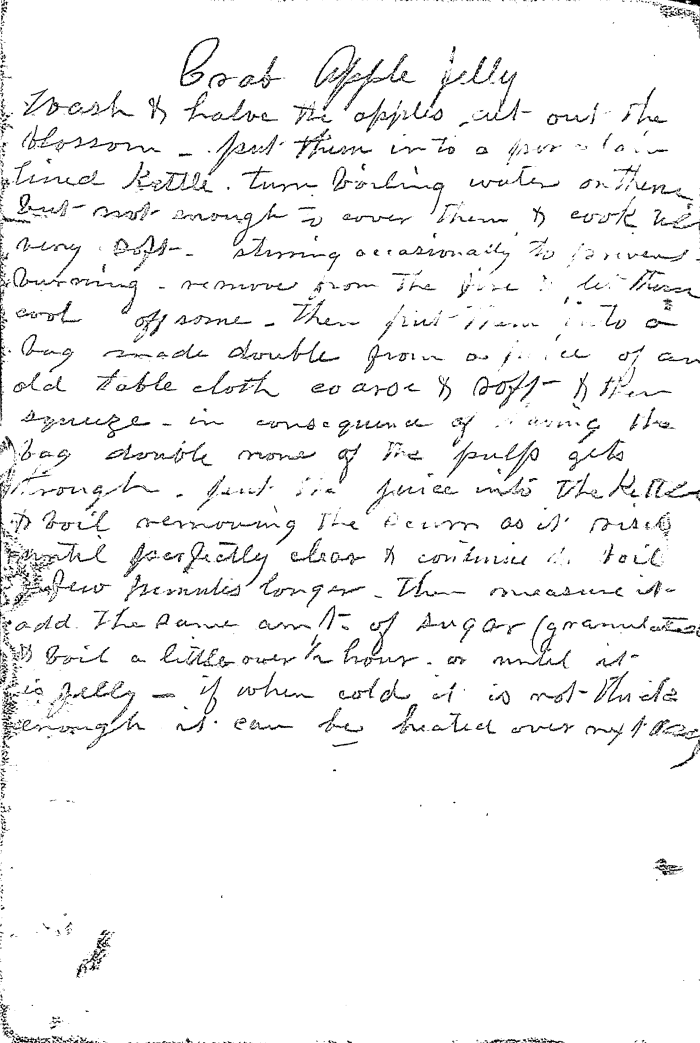 Crab Apple jelly
Wash & halve the apples cut out the
blossom - put them into a porcelain
lined Kettle. turn boiling water on them
but not enough to cover them & cook till
very soft - stirring occasionally to prevent
burning - remove from the fire & let them
cool off some - then put them into a
bag made double from a piece of an
old table cloth coarse & soft & then
squeeze - in consequence of having the
bag double none of the pulp gets
through. put the juice into the Kettle
& boil removing the scum as it rises
until perfectly clear & continue to boil
a few minutes longer - then measure it
add the same amt. of sugar (granulated
& boil a little over ½ hour. or until it
is jelly - if when cold it is not thick
enough it can be heated over next day